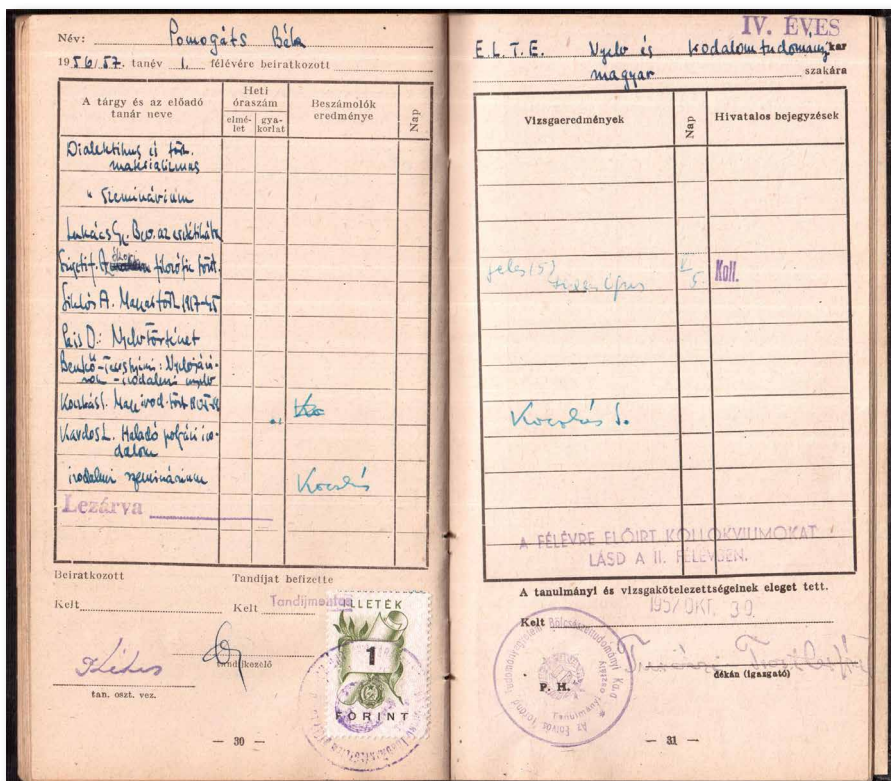 Név: Pomogáts Béla
1956/57. tanév 1. félévére beiratkozott
A tárgy és az előadó tanár neve
Heti óraszám
elmé-let
gya-korlat
Beszámolók eredménye
Nap
Dialektikus és tört.
materializmus
" szeminárium
Lukács Gy. Bev. az esztétikába
Szigeti J. filozófia tört.
Siklós A. Magy. tört. 1917-45
Pais D.: Nyelvtörténet
Benkő-
irodalmi nyelv
Magy. irod. tört.
Kardos L. Haladó polgári iro-
dalom
irodalmi szeminárium
Kocsás
Lezárva
Beiratkozott
Tandíjat befizette
Kelt
Kelt Tandíjmentes
ILLETÉK
1
FORINT
tan. oszt. vez.
— 30 —
IV. ÉVES
E.L.T.E. Nyelv és irodalomtudomány kar
magyar szakára
Vizsgaeredmények
Nap
Hivatalos bejegyzések
jeles (5)
Koll.
A FÉLÉVRE ELŐIRT KOLLOKVIUMOKAT
LÁSD A II. FÉLÉVBEN.
A tanulmányi és vizsgakötelezettségeinek eleget tett.
1957 OKT. 30.
Kelt
P. H.
dékán (igazgató)
— 31 —